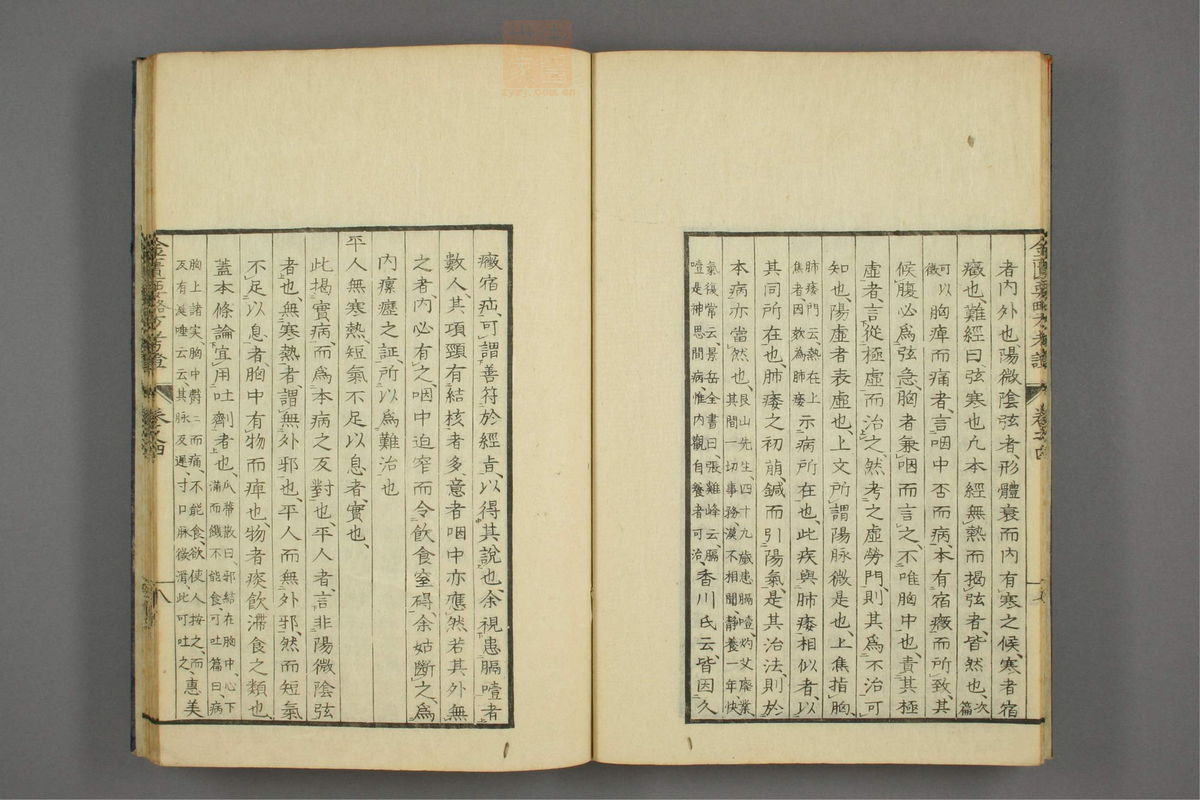 者內外也、陽微陰弦者、形體衰而內有寒之候、寒者宿
癥也、難經曰、弦寒也、凢本經無熱而揭弦者、皆然也、次篇
可以胸痺而痛者、言咽中否而病本有宿癥而所致、其
候腹必為弦急、胸者兼咽而言之、不唯胸中也、責其極
虛者、言從極虛而治之、然考之虛勞門、則其為不治可
知也、陽虛者表虛也、上文所謂陽脉微是也、上焦指胸、
肺痿門云、熱在上焦者、因欬為肺痿 示病所在也、此疾與肺痿相似者、以
其同所在也、肺痿之初萠、鍼而引陽氣、是其治法、則於
本病亦當然也、艮山先生、四十九歲患膈噎、灼艾廢業、其間一切事務、漠不相聞、靜養一年、快
氣復常云、景岳全書曰、張雞峰云、膈噎是神思間病、惟內觀自養者可治、香川氏云、皆因久
癥宿疝、可謂善符於經旨、以得其說也、余視患膈噎者
數人、其項頸有結核者多、意者咽中亦應然、若其外無
之者、內必有之、咽中迫窄而令飲食窒碍、余姑斷之、為
內瘰癧之証、所以為難治也
平人無寒熱、短氣不足以息者、實也、
此揭實病、而為本病之反對也、平人者、言非陽微陰弦
者也、無寒熱者、謂無外邪也、平人而無外邪、然而短氣
不足以息者、胸中有物而痺也、物者痰飲滯食之類也、
蓋本條論宜用吐劑者也、瓜蒂散曰、邪結在胸中、心下滿而饑不能食、可吐篇曰、病
胸上諸実、胸中鬱々而痛、不能食、欲使人按之、而反有涎唾云云、其脉反遲、寸口脉微滑、此可吐之、惠美
金匱要略方考證
卷之四
八